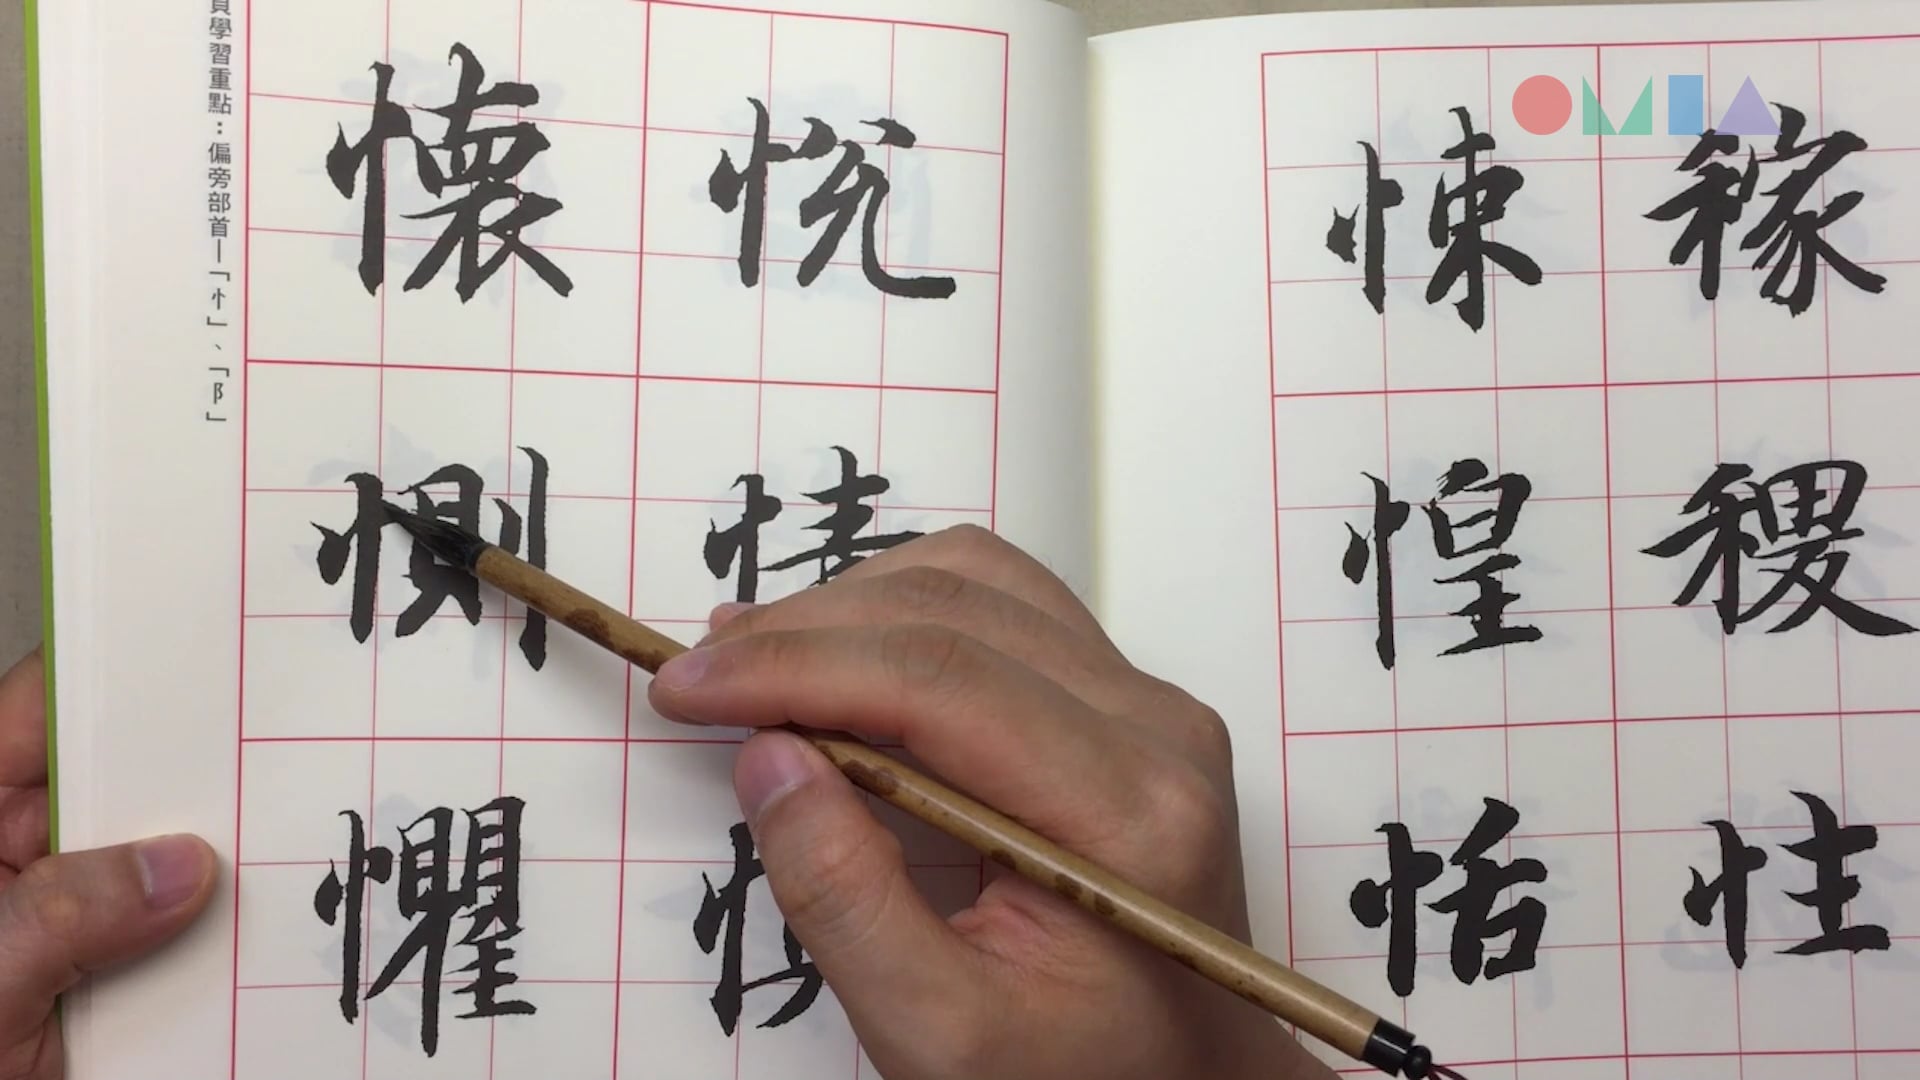 OMIA
稼稷性
悚惶恬
悅情
懷惻懼
頁學習重點：偏旁部首—「忄」、「阝」